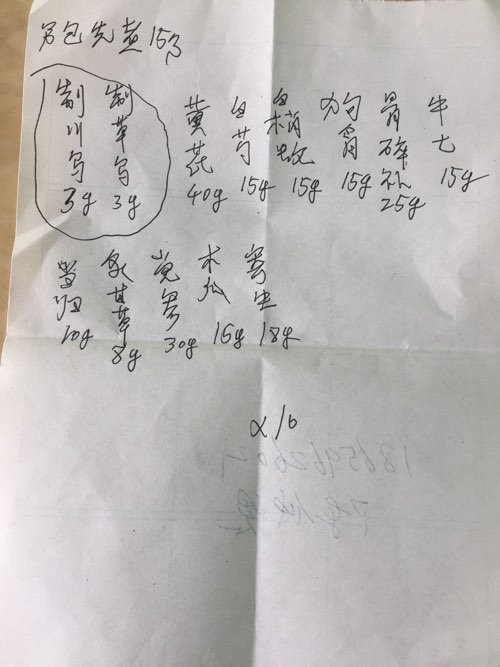 另包先煮15分
制川乌 3g
制草乌 3g
黄芪 40g
白芍 15g
15g
15g
骨碎补 25g
牛七 15g
当归 10g
炙甘草 8g
党参 30g
木瓜 15g
寄生 18g